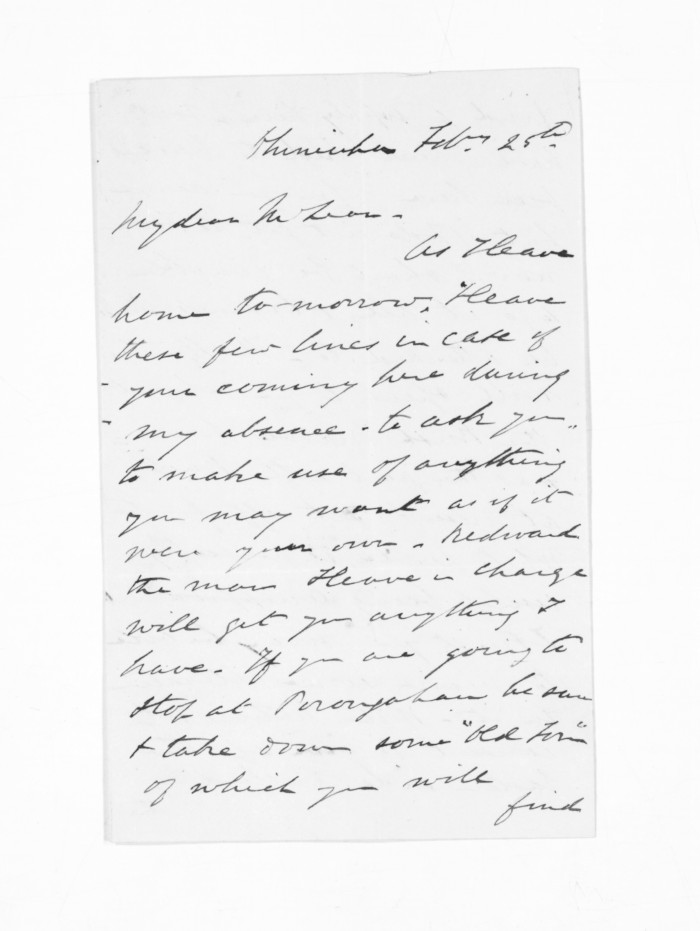 Feby 25th
My dear McLean -
As I leave
home to-morrow, I leave
these few lines in case of
your coming here during
my absence - to ask you
to make use of anything
you may want as if it
were your own -
the man I leave in charge
will get you anything I
have - If you are going to
stop at Porongahau be sure
& take down some "Old Tom"
of which you will
find